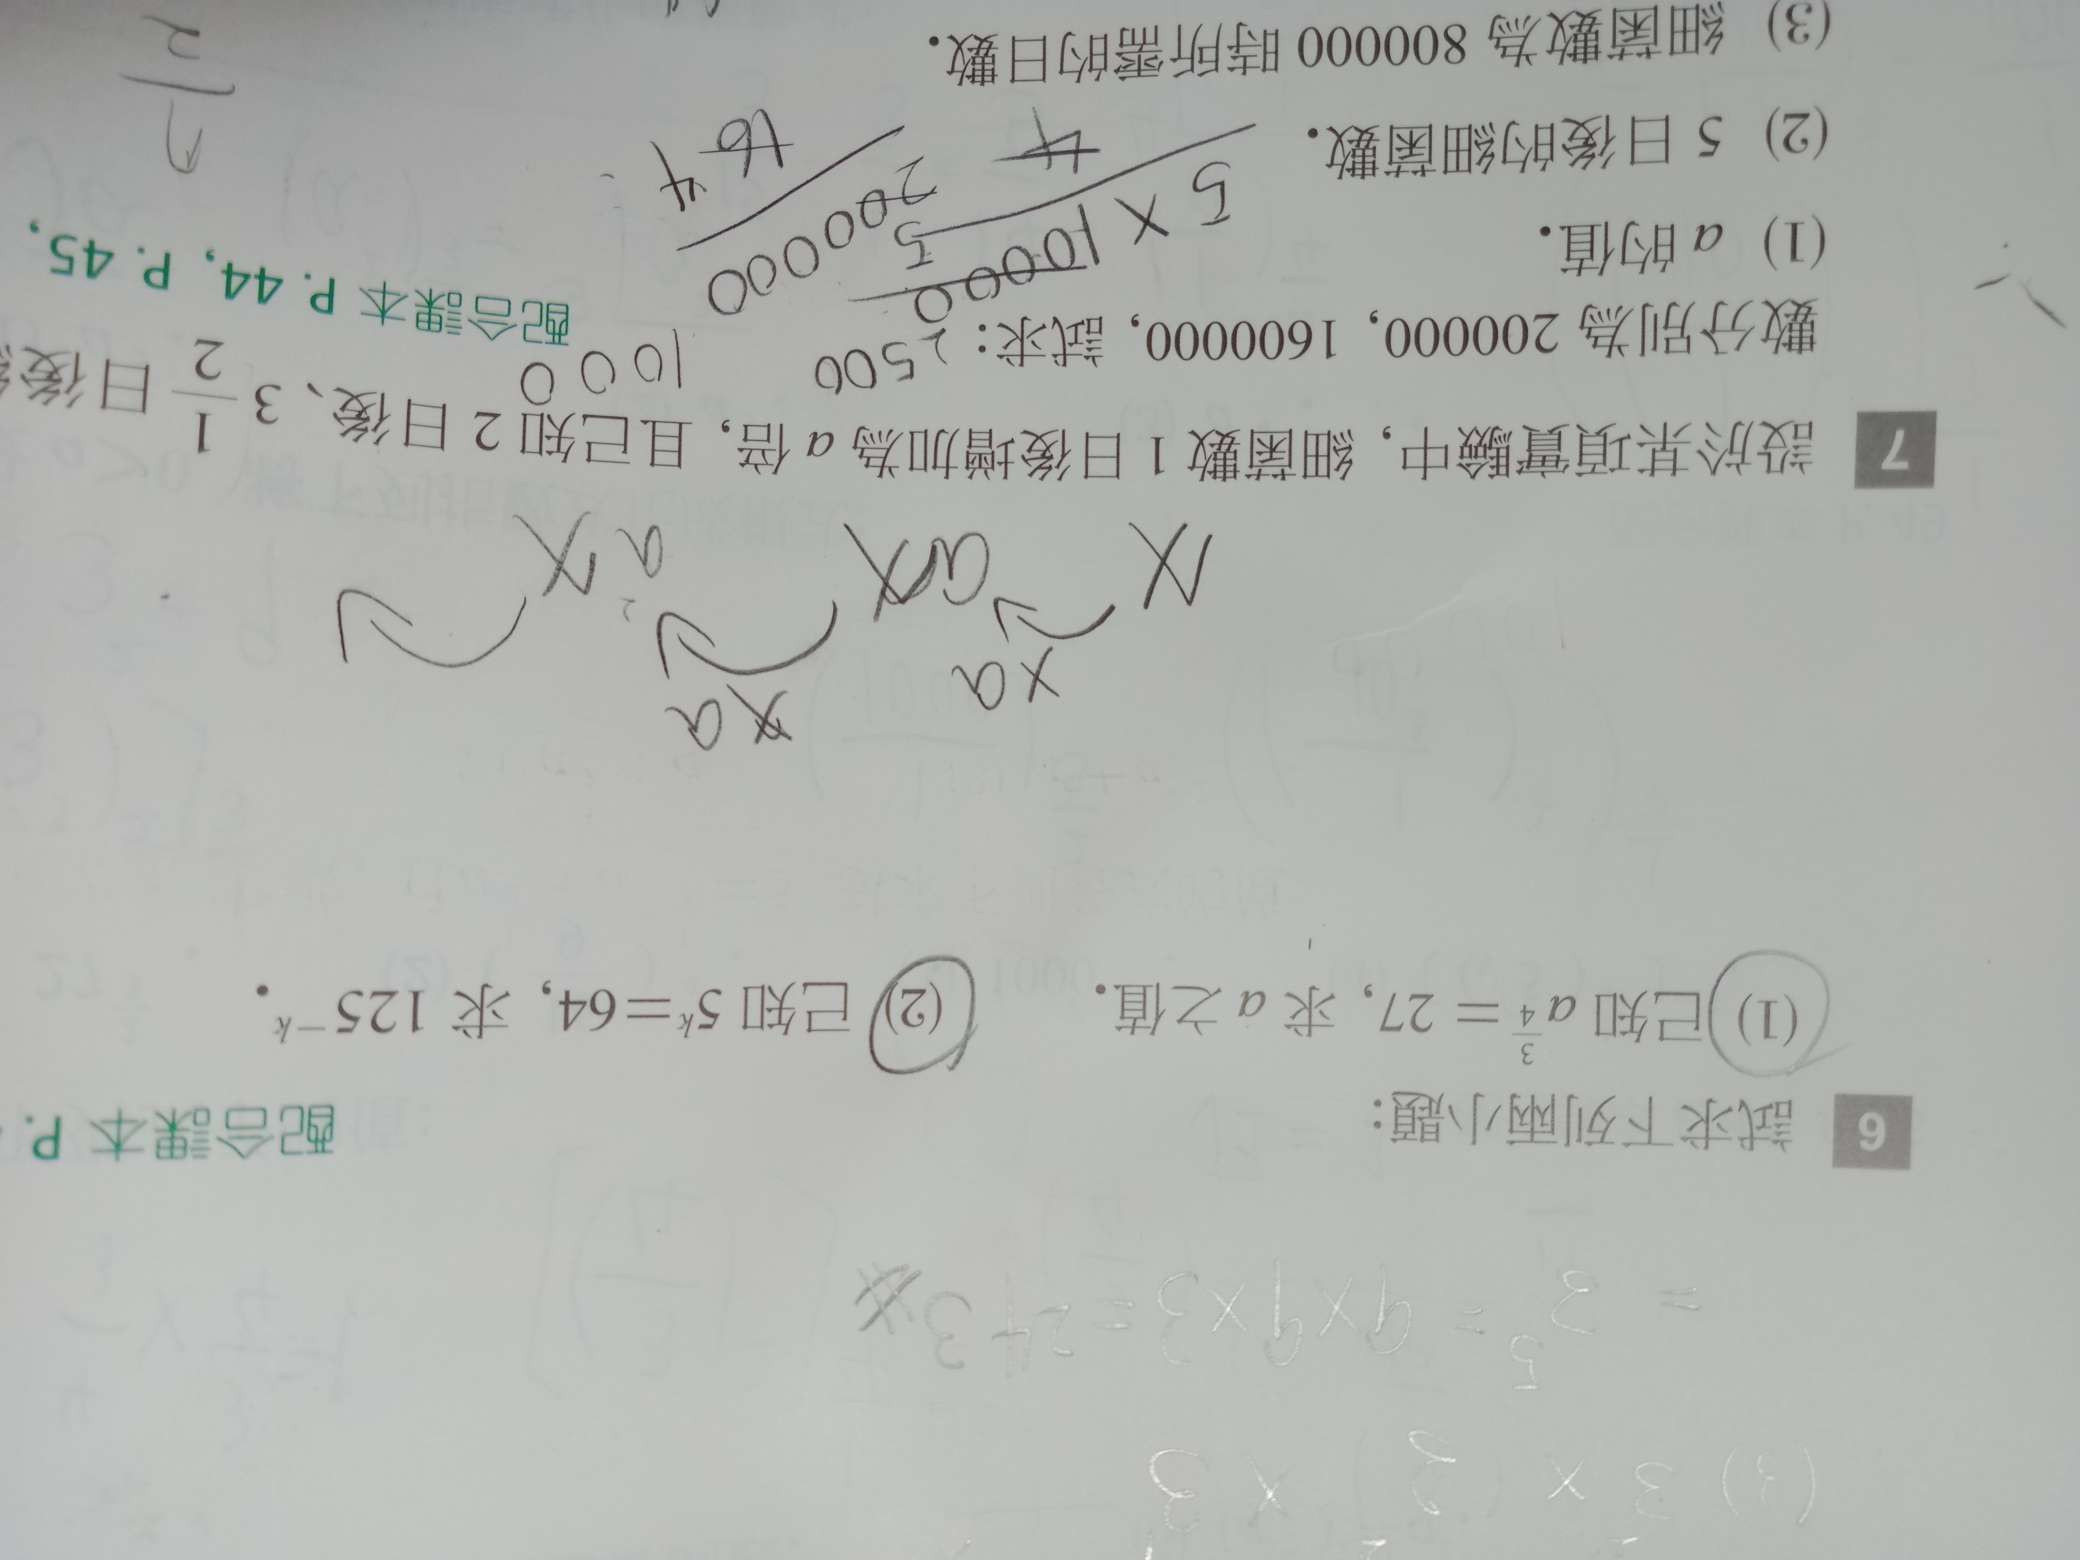 (3) 3 × (3) × 3
= 3⁵ = 9×9×3 = 243
6 試求下列兩小題：
配合課本 P.
(1) 已知 a^{3/4} = 27, 求 a 之值．　(2) 已知 5^k = 64, 求 125^{-k}．
×a ×a
x ax a²x
7 設於某項實驗中, 細菌數 1 日後增加為 a 倍, 且已知 2 日後、3 1/2 日後
數分別為 200000, 1600000, 試求：
配合課本 P. 44, P. 45,
2500
1000
(1) a 的值．
5 × 10000
5
4
200000
16 4
(2) 5 日後的細菌數．
(3) 細菌數為 800000 時所需的日數．